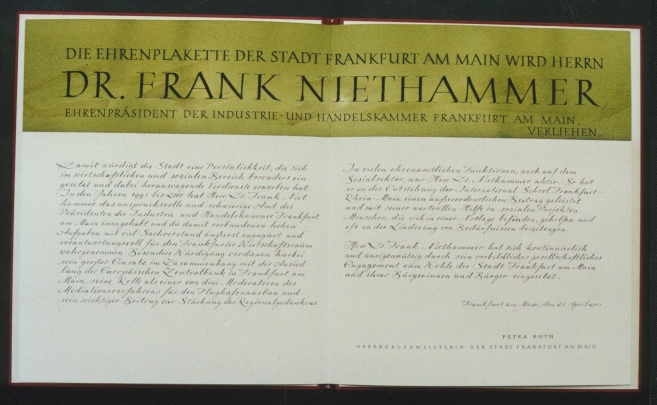 DIE EHRENPLAKETTE DER STADT FRANKFURT AM MAIN WIRD HERRN
DR. FRANK NIETHAMMER
EHRENPRÄSIDENT DER INDUSTRIE-UND HANDELSKAMMER FRANKFURT AM MAIN
VERLIEHEN.
Damit würdigt die Stadt eine Persönlichkeit, die sich
im wirtschaftlichen und sozialen Bereich besonders ein-
gesetzt und dabei herausragende Verdienste erworben hat.
In den Jahren 1991 bis hat Herr Dr. Frank Niet-
hammer das anspruchsvolle und schwierige Amt des
Präsidenten der Industrie- und Handelskammer Frankfurt
am Main innegehabt und die damit verbundenen hohen
Aufgaben mit viel Sachverstand äußerst engagiert und
verantwortungsvoll für den Frankfurter Wirtschaftsraum
wahrgenommen. Besondere Würdigung verdienen hierbei
sein großer Einsatz im Zusammenhang mit der Ansied-
lung der Europäischen Zentralbank in Frankfurt am
Main, seine Rolle als einer von drei Moderatoren des
Mediationsverfahrens für den Flughafenausbau und
sein wichtiger Beitrag zur Stärkung des Regionalgedankens.
In vielen ehrenamtlichen Funktionen, auch auf dem
Sozialsektor, war Herr Dr. Niethammer aktiv. So hat
er an der Entstehung der International School Frankfurt-
Rhein-Main einen außerordentlichen Beitrag geleistet
und mit seiner wertvollen Hilfe in sozialen Projekten
Menschen, die sich in einer Notlage befinden, geholfen und
oft zu der Linderung von Bedürfnissen beigetragen.
Herr Dr. Frank Niethammer hat sich kontinuierlich
und uneigennützig durch sein vorbildliches gesellschaftliches
Engagement zum Wohle der Stadt Frankfurt am Main
und ihrer Bürgerinnen und Bürger eingesetzt.
Frankfurt am Main, den April
PETRA ROTH
OBERBÜRGERMEISTERIN DER STADT FRANKFURT AM MAIN